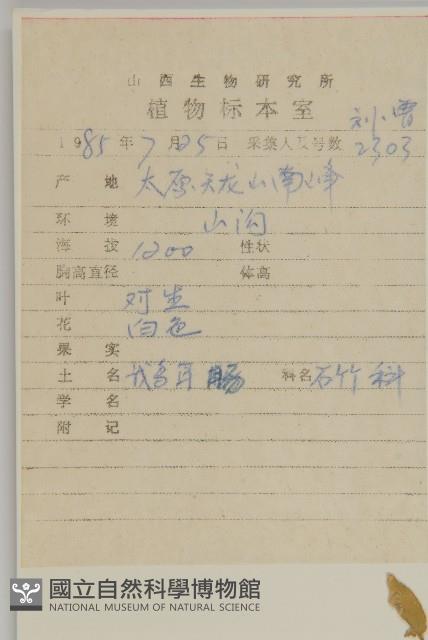 山西生物研究所
植物标本室
刘小曹
1985年7月25日 采集人及号数 2303
产 地 太原.天龙山南峰
环 境 山沟
海 拔 1200 性状
胸高直径 体高
叶 对生
花 白色
果 实
土 名 鹅肠 科名 石竹科
学 名
附 记
國立自然科學博物館
NATIONAL MUSEUM OF NATURAL SCIENCE